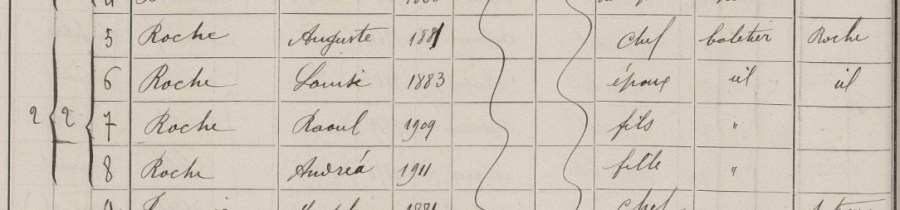 5 Roche Auguste 1881 chef cafetier Roche
6 Roche Louise 1883 époux id id
2 2 7 Roche Raoul 1909 fils "
8 Roche Andréa 1911 fille "